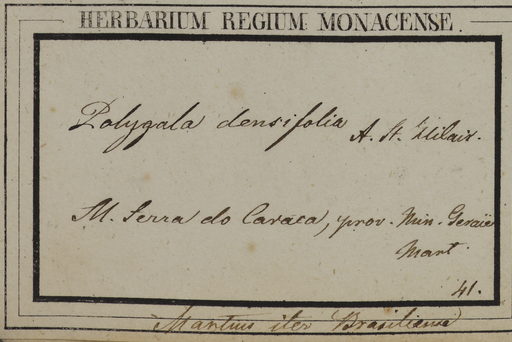 HERBARIUM REGIUM MONACENSE.
Polygala densifolia A. St. Hilair.
M. Serra do Caraca, prov. Min. Geraië
Mart.
41.
Martius iter Brasiliense